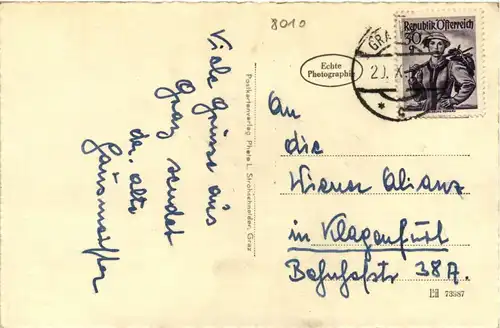 8010
Viele Grüsse aus
Graz sendet
der alte
Gausmeister
Postkartenverlag Photo L. Strohschneider, Graz
Echte
Photographie
Republik Österreich
30
GRA
20. X.
An
die
Wiener Alianz
in Klagenfurt
Bahnhofstr 38A.
73987